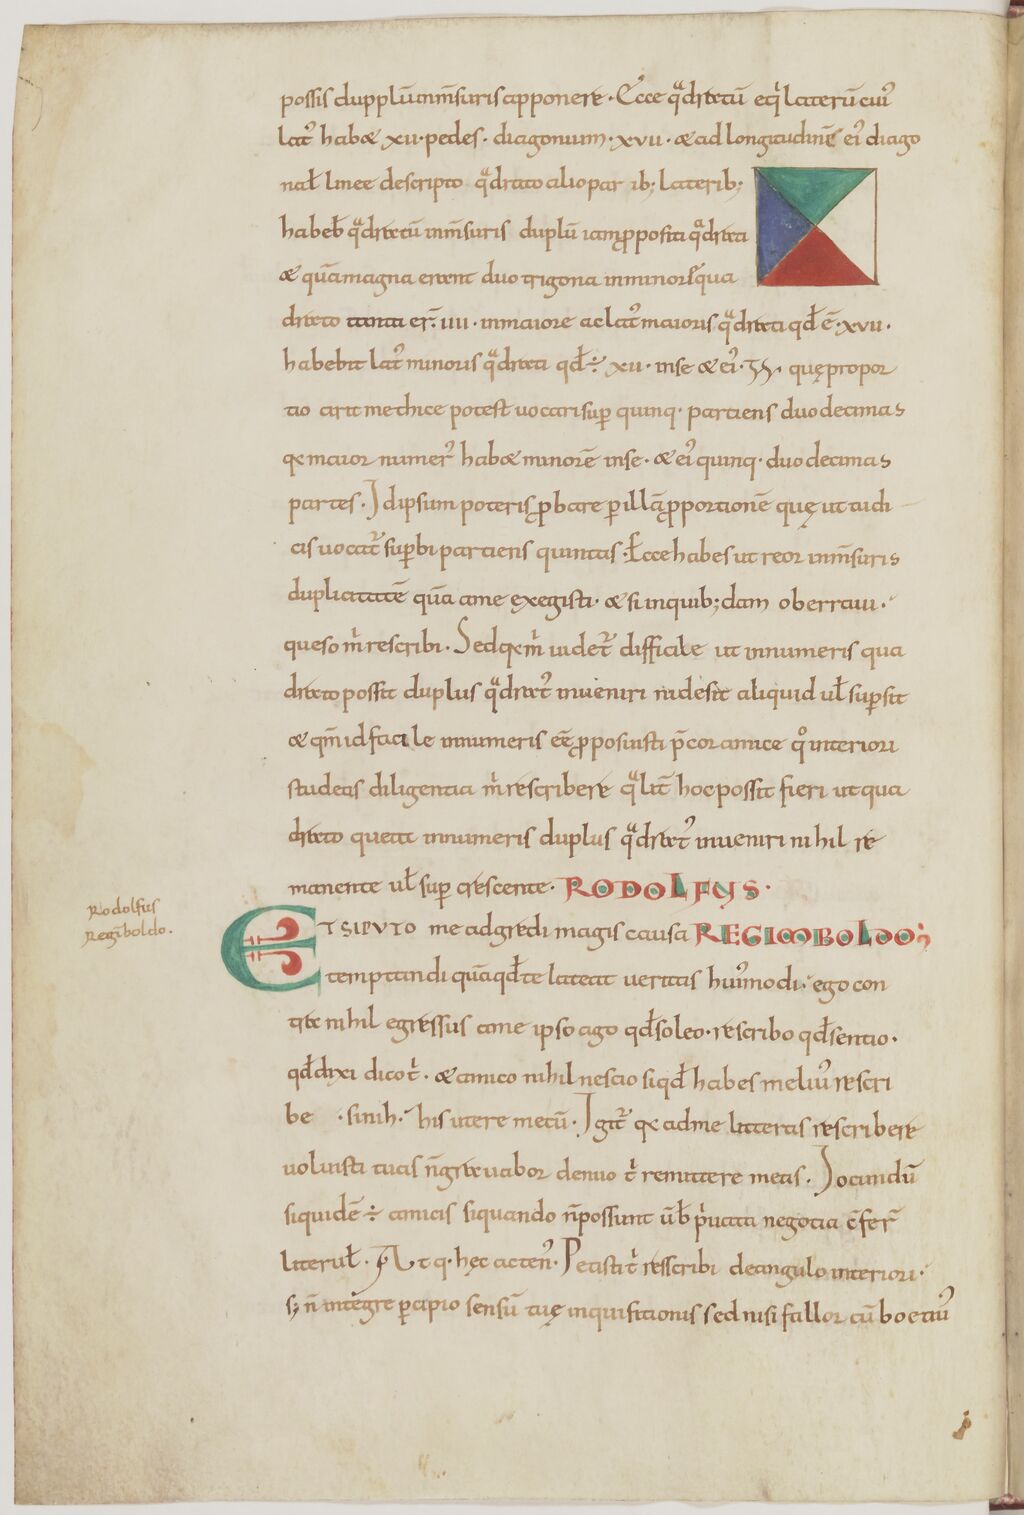 possis dupplū inm̄suris apponere. Ecce qͣdratū eqͥlaterū cui᾽
lat᾽ habæ xii. pedes. diagonum. xvii. æ ad longitudinē ei᾽ diago
nał linee descripto qͣdrato alio par ib; laterib;
habeb̄ qͣdratū inm̄suris duplū iam ꝓpositi qͣdrati
æ quā magna erant duo trigona in minori qua
drato tanta er̄ iiii. in maiore ac lat᾽ maioris qͣdrati qd̄ ē xvii.
habebit lat᾽ minoris qͣdrati qd̄ ÷ xii. in se æ ei᾽ quę propor
tio aritmethice potest uocari suꝑ quinq. partiens duodecimas
qa maior numer᾽ habæ minorē in se. æ ei᾽ quinq. duodecimas
partes. Id ipsum poteris ꝓbare ꝑ illā ꝓportionē quę ut tu di
cis uocat᾽ suꝑbipartiens quintas. Ecce habes ut reor inm̄suris
duplicitatē quā a me exegisti. æ si in quib;dam oberraui.
queso mͥ rescribi. Sed qa mͥ uidet᾽ difficile ut in numeris qua
drato possit duplus qͣdrat᾽ inueniri n̄ desit aliquid uł suꝑsit
æ qm̄ id facile in numeris eē ꝓposuisti p̄cor amice qͦ interiori
studeas diligentia mͥ rescribere qͣlit̄ hoc possit fieri ut qua
drato queat in numeris duplus qͣdrat᾽ inueniri nihil re
manente uł suꝑ crescente. RODOLFVS.
Rodolfus
Regīboldo.
ET SI PVTO me adgredi magis causa REGIMBOLDO
temptandi quā qd̄ te lateat ueritas hui᾽modi. ego con
tra nihil egressus a me ipso ago qd̄ soleo. rescribo qd̄ sentio.
qd̄ dixi dico tͥ. æ amico nihil nescio si qd̄ habes meliu᾽ rescri
be . si nih. his utere mecū. Igit᾽ qa ad me litteras rescribere
uoluisti tuas n̄ grauabor denuo tͥ remittere meas. Jocundū
siquidē ÷ amicis si quando n̄ possunt ūb pͥuata negotia c̄fer̄
literuł. At q. hęc acten᾽. Petisti tͥ resscribi de angulo interiori.
n̄ integre ꝑcipio sensū tuę inquisitionis sed nisi fallor cū boetiu᾽